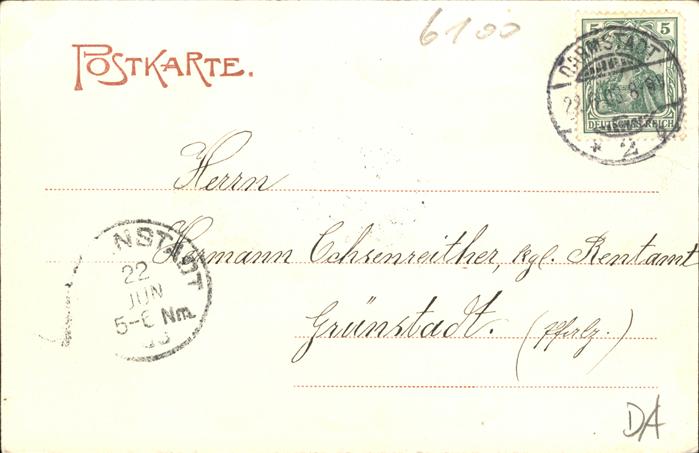 6100
POSTKARTE.
5 5
DARMSTADT
22.
DEUTSCHES REICH
* 2 *
Herrn
Hermann Ochsenreither, kgl. Rentamt
Grünstadt. (Pfalz.)
NSTADT
22
JUN
5-6 Nm.
DA